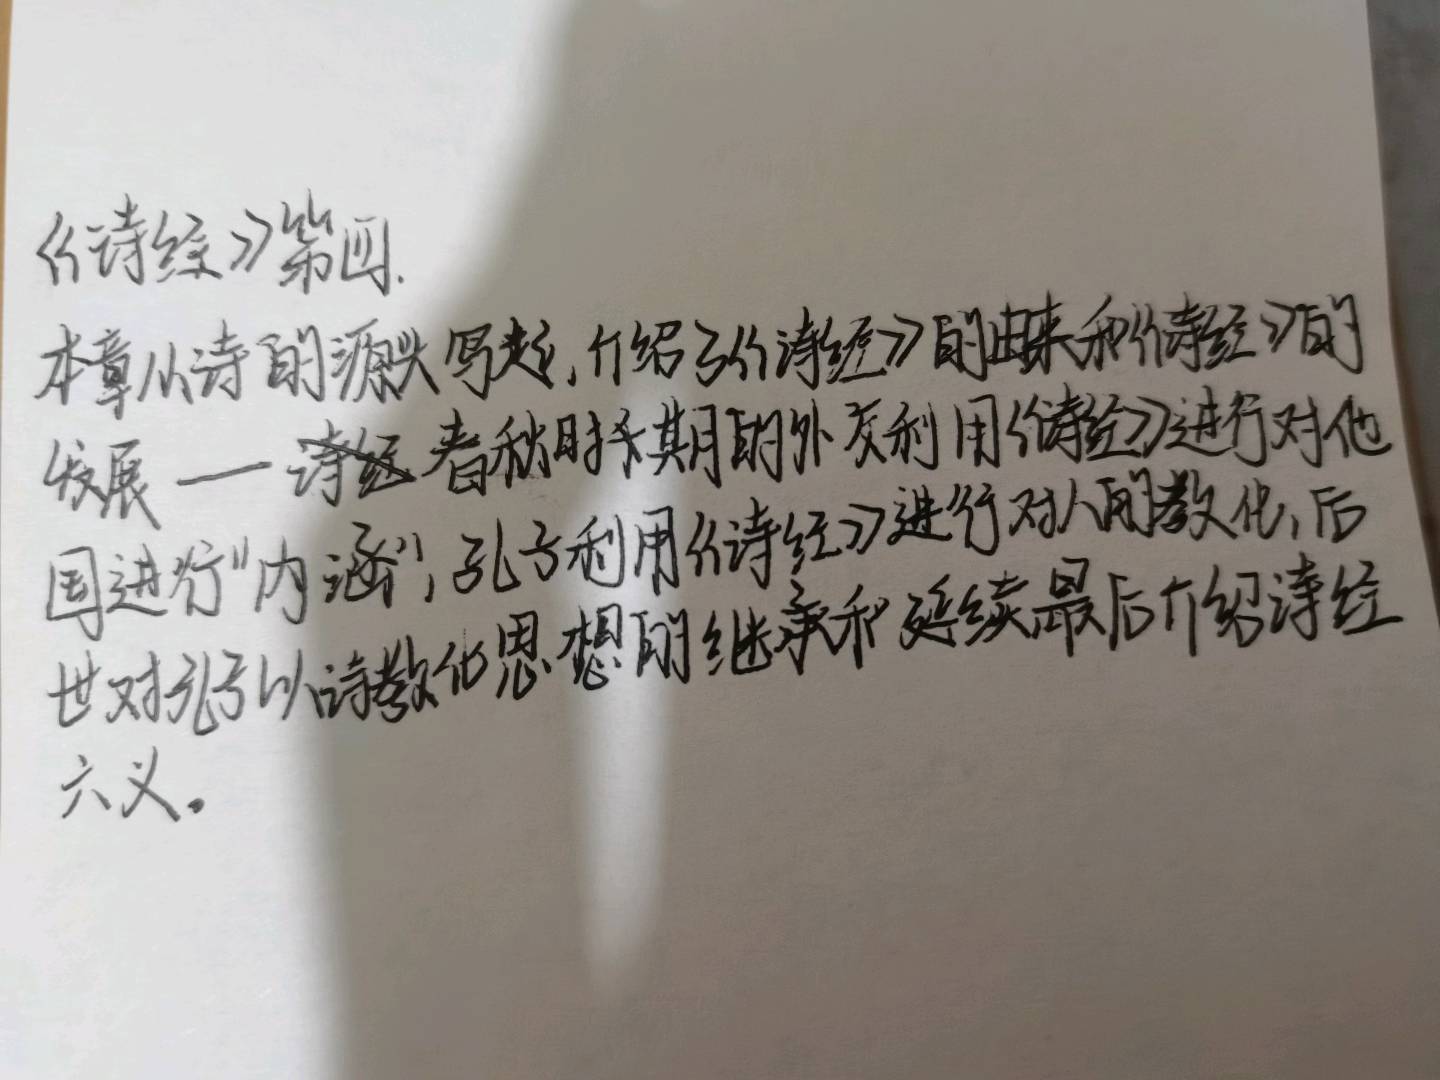 《诗经》第四.
本章从诗的源头写起,介绍了《诗经》的由来和《诗经》的
发展——春秋时期的外交利用《诗经》进行对他
国进行"内涵",孔子利用《诗经》进行对人的教化,后
世对孔子以诗教化思想的继承和延续,最后介绍诗经
六义。